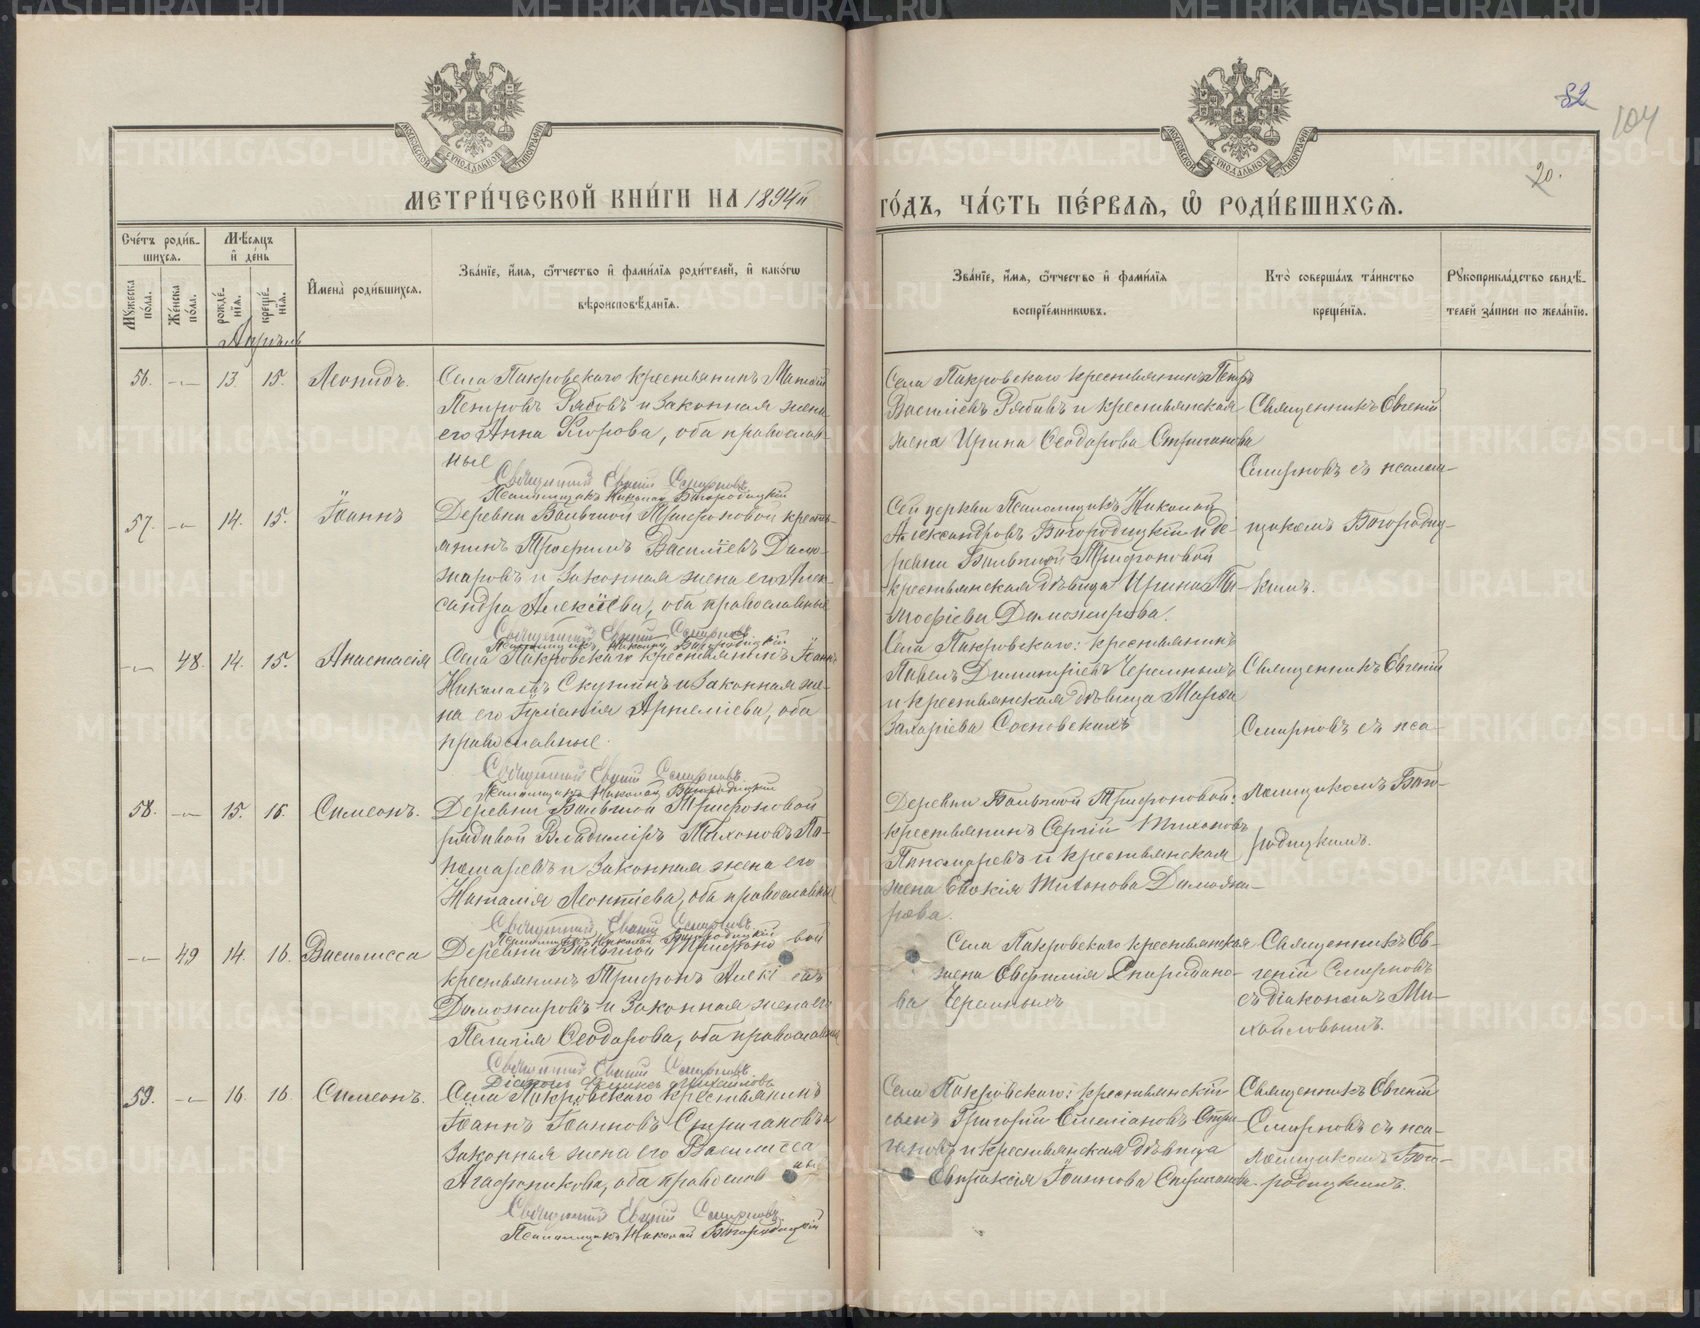 МЕТРИ́ЧЕСКОЙ КНИ́ГИ НА 1894й
ГО́ДЪ, ЧА́СТЬ ПЕ́РВАЯ, Ѡ҆ РОДИ́ВШИХСЯ.
82
104
20.
Сче́тъ роди́в-
шихся.
Мꙋжеска по́ла.
Же́нска по́ла.
Мѣ́сяцъ
и҆ де́нь
рожде́-
нїя.
креще́-
нїя.
И҆мена̀ роди́вшихся.
Зва́нїе, и҆́мя, ѻ҆́тчество и҆ фами́лїя роди́телей, и҆ како́гѡ
вѣроисповѣ́данїя.
Зва́нїе, и҆́мя, ѻ҆́тчество и҆ фами́лїя
воспрїе́мникѡвъ.
Кто̀ соверша́лъ та́инство
креще́нїя.
Рꙋкоприкла́дство свидѣ́-
телей за́писи по жела́нїю.
Апрѣль
56. 13. 15. Леонидъ.
Села Покровскаго крестьянинъ Матѳій
Петровъ Рябовъ и законная жена
его Анна Егорова, оба православ-
ные
Священникъ Евгеній Смирновъ
Псаломщикъ Николай Богородицкій
Села Покровскаго крестьянинъ Петръ
Василіевъ Рябовъ и крестьянская
жена Ирина Ѳеодорова Стриганова
Священникъ Евгеній
Смирновъ съ псалом-
57. 14. 15. Іоаннъ
Деревни Большой Трифоновой кресть-
янинъ Трофимъ Василіевъ Домо-
жировъ и законная жена его Алек-
сандра Алексіева, оба православные
Священникъ Евгеній Смирновъ
Псаломщикъ Николай Богородицкій
Сей церкви Псаломщикъ Николай
Александровъ Богородицкій и де-
ревни Большой Трифоновой
крестьянская дѣвица Ирина Ти-
моѳіева Доможирова.
щикомъ Богородиц-
кимъ.
48. 14. 15. Анастасія
Села Покровскаго крестьянинъ Іоаннъ
Николаевъ Скутинъ и законная же-
на его Іуліанія Артеміева, оба
православные.
Священникъ Евгеній Смирновъ
Псаломщикъ Николай Богородицкій
Села Покровскаго: крестьянинъ
Павелъ Димитріевъ Черемныхъ
и крестьянская дѣвица Марѳа
Захаріева Сосновскихъ
Священникъ Евгеній
Смирновъ съ пса-
58. 15. 16. Симеонъ.
Деревни Большой Трифоновой
рядовой Владиміръ Тихоновъ По-
номаревъ и законная жена его
Наталія Леонтіева, оба православные
Священникъ Евгеній Смирновъ
Псаломщикъ Николай Богородицкій
Деревни Большой Трифоновой:
крестьянинъ Сергій Тихоновъ
Пономаревъ и крестьянская
жена Евдокія Титонова Доможи-
рова.
ломщикомъ Бого-
родицкимъ.
49 14. 16. Василисса
Деревни Большой Трифоно вой
крестьянинъ Трифонъ Алексі евъ
Доможировъ и законная жена его
Пелагія Ѳеодорова, оба православные
Священникъ Евгеній Смирновъ
Діаконъ Михайловъ
Села Покровскаго крестьянская
жена Евфимія Спиридоно-
ва Черемныхъ
Священникъ Ев-
геній Смирновъ
съ діакономъ Ми-
хайловымъ.
59. 16. 16. Симеонъ.
Села Покровскаго крестьянинъ
Іоаннъ Іоанновъ Стригановъ и
законная жена его Василисса
Агафоникова, оба православ ные
Священникъ Евгеній Смирновъ
Псаломщикъ Николай Богородицкій
Села Покровскаго: крестьянскій
сынъ Григорій Симеоновъ Стри-
гановъ и крестьянская дѣвица
Евпраксія Іоаннова Стриганова.
Священникъ Евгеній
Смирновъ съ пса-
ломщикомъ Бого-
родицкимъ.